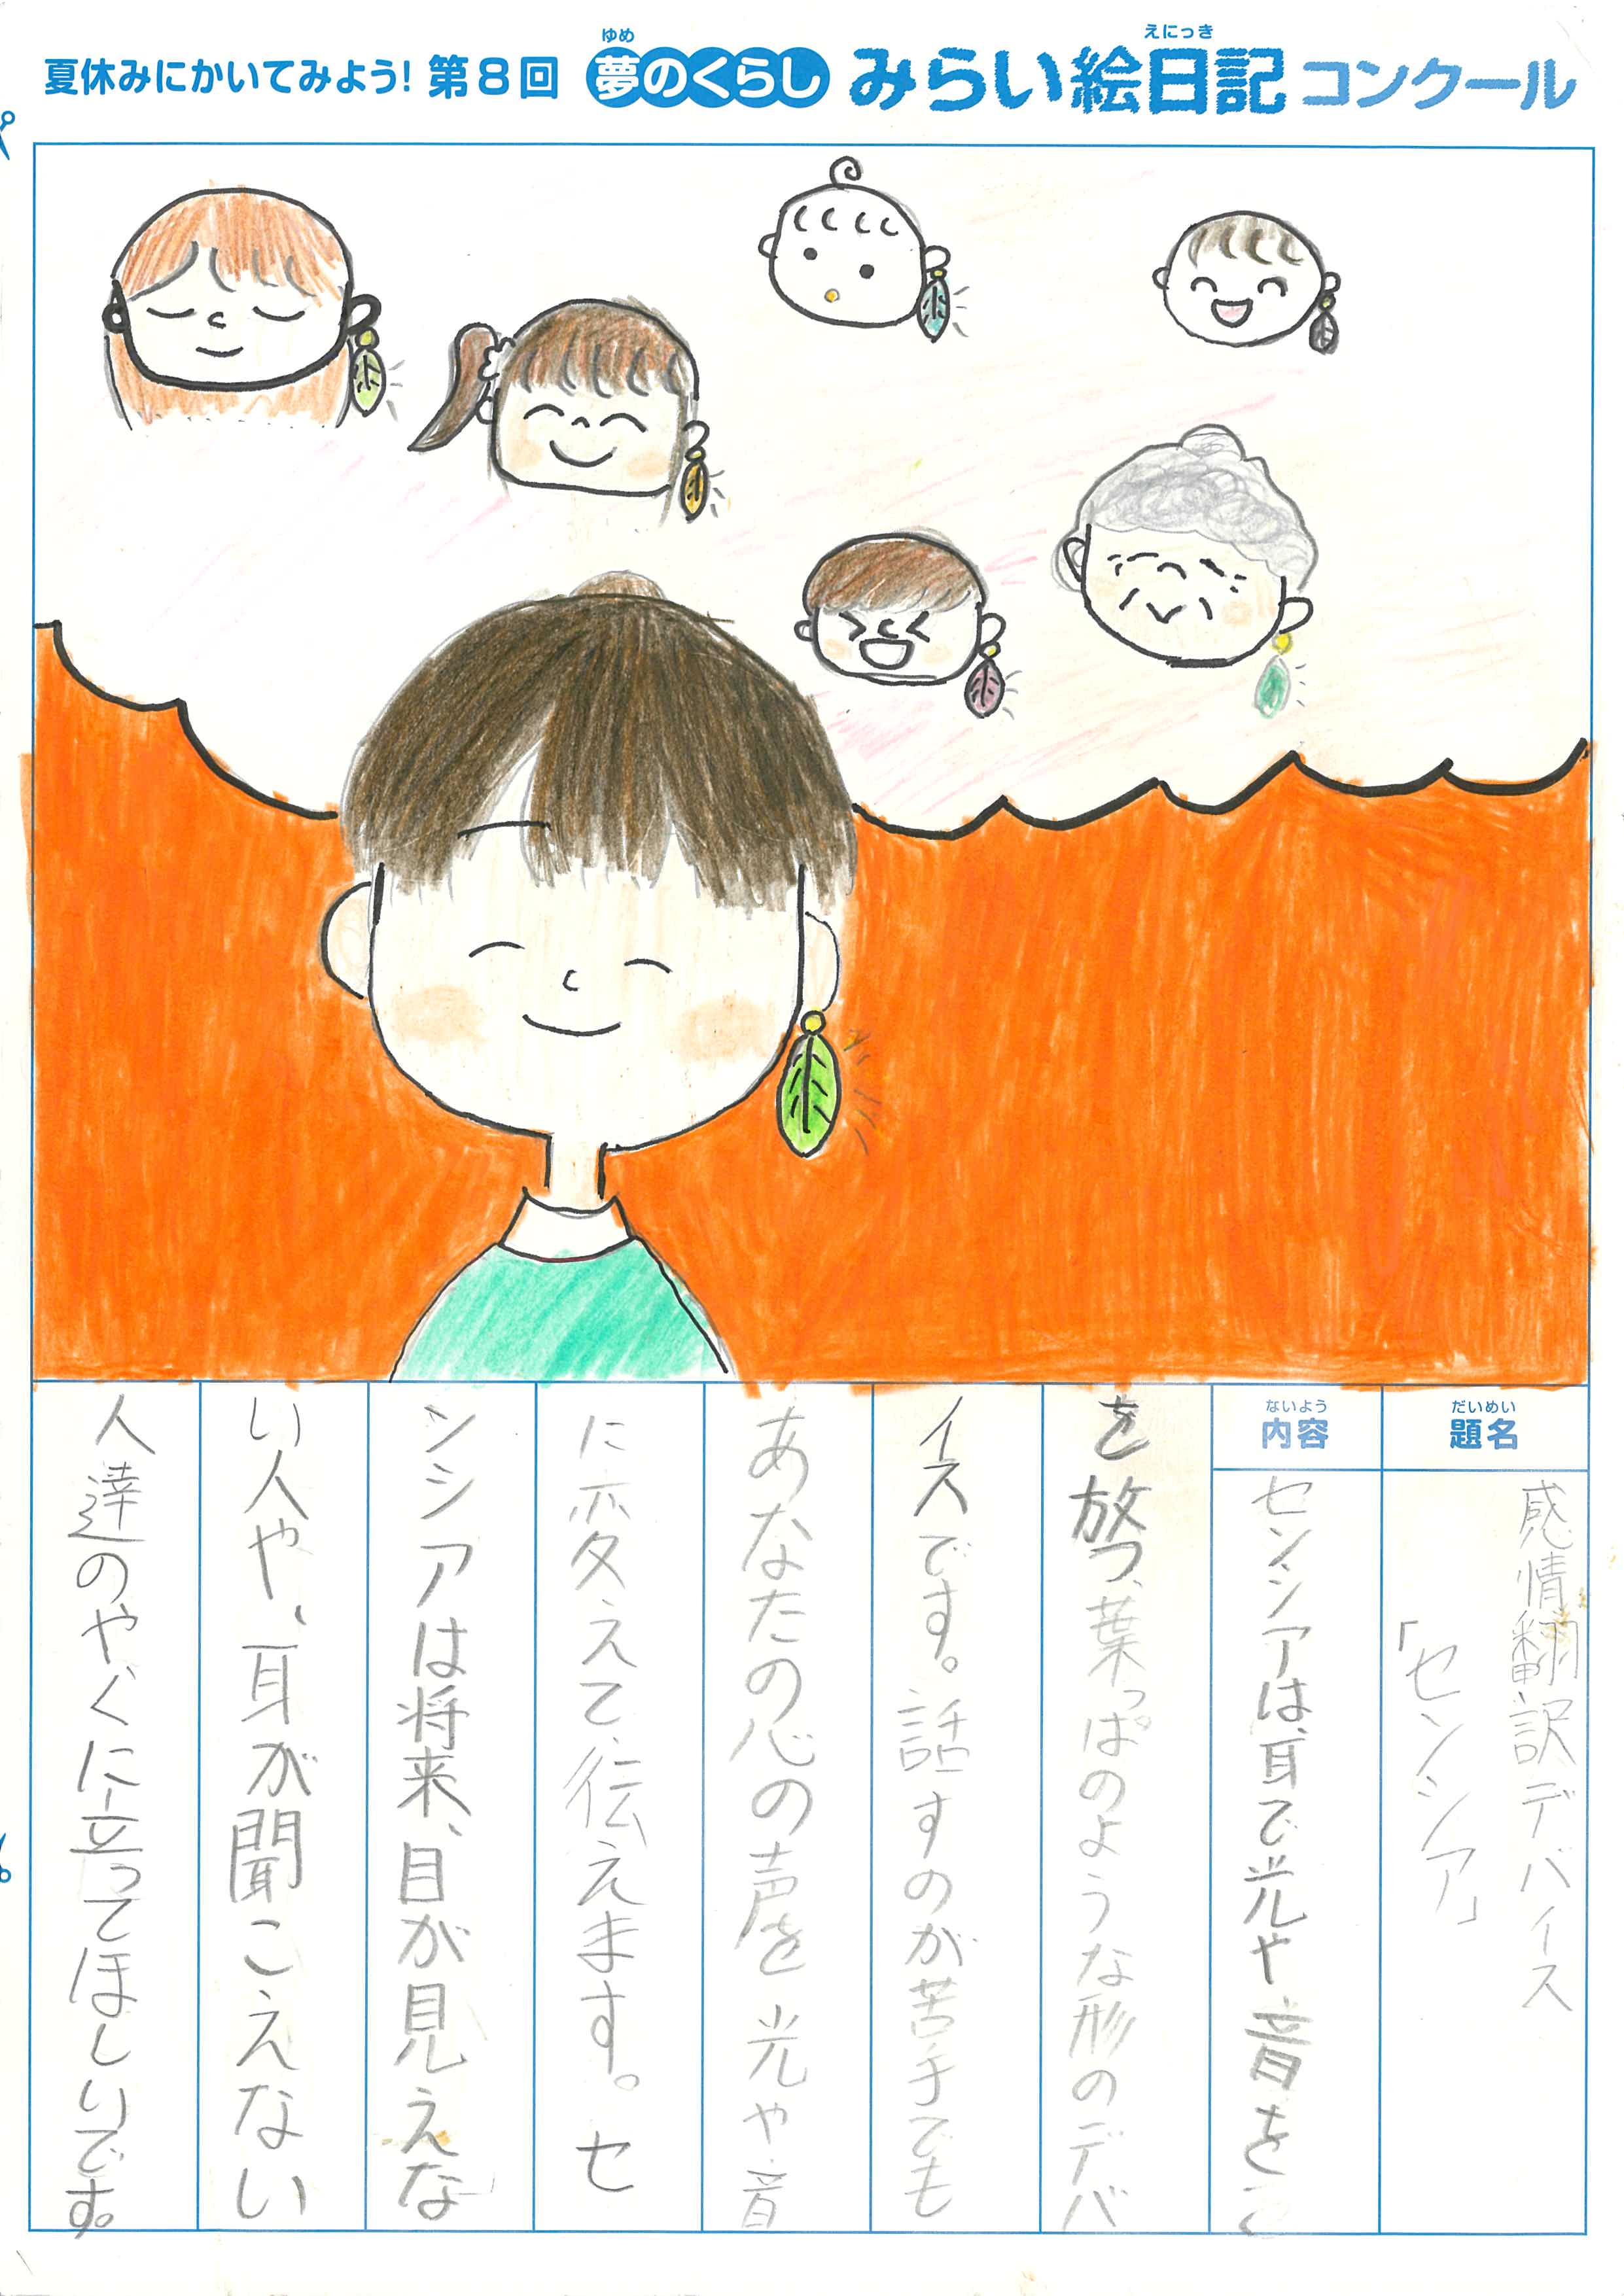 夏休みにかいてみよう! 第8回 夢のくらし みらい絵日記 コンクール
ゆめ
えにっき
だいめい
題名
感情翻訳デバイス
「センシア」
ないよう
内容
センシアは、耳で光や音を
を放つ、葉っぱのような形のデバ
イスです。話すのが苦手でも
あなたの心の声を光や音
に変えて、伝えます。セ
ンシアは将来、目が見えな
い人や、耳が聞こえない
人達のやくに立ってほしいです。